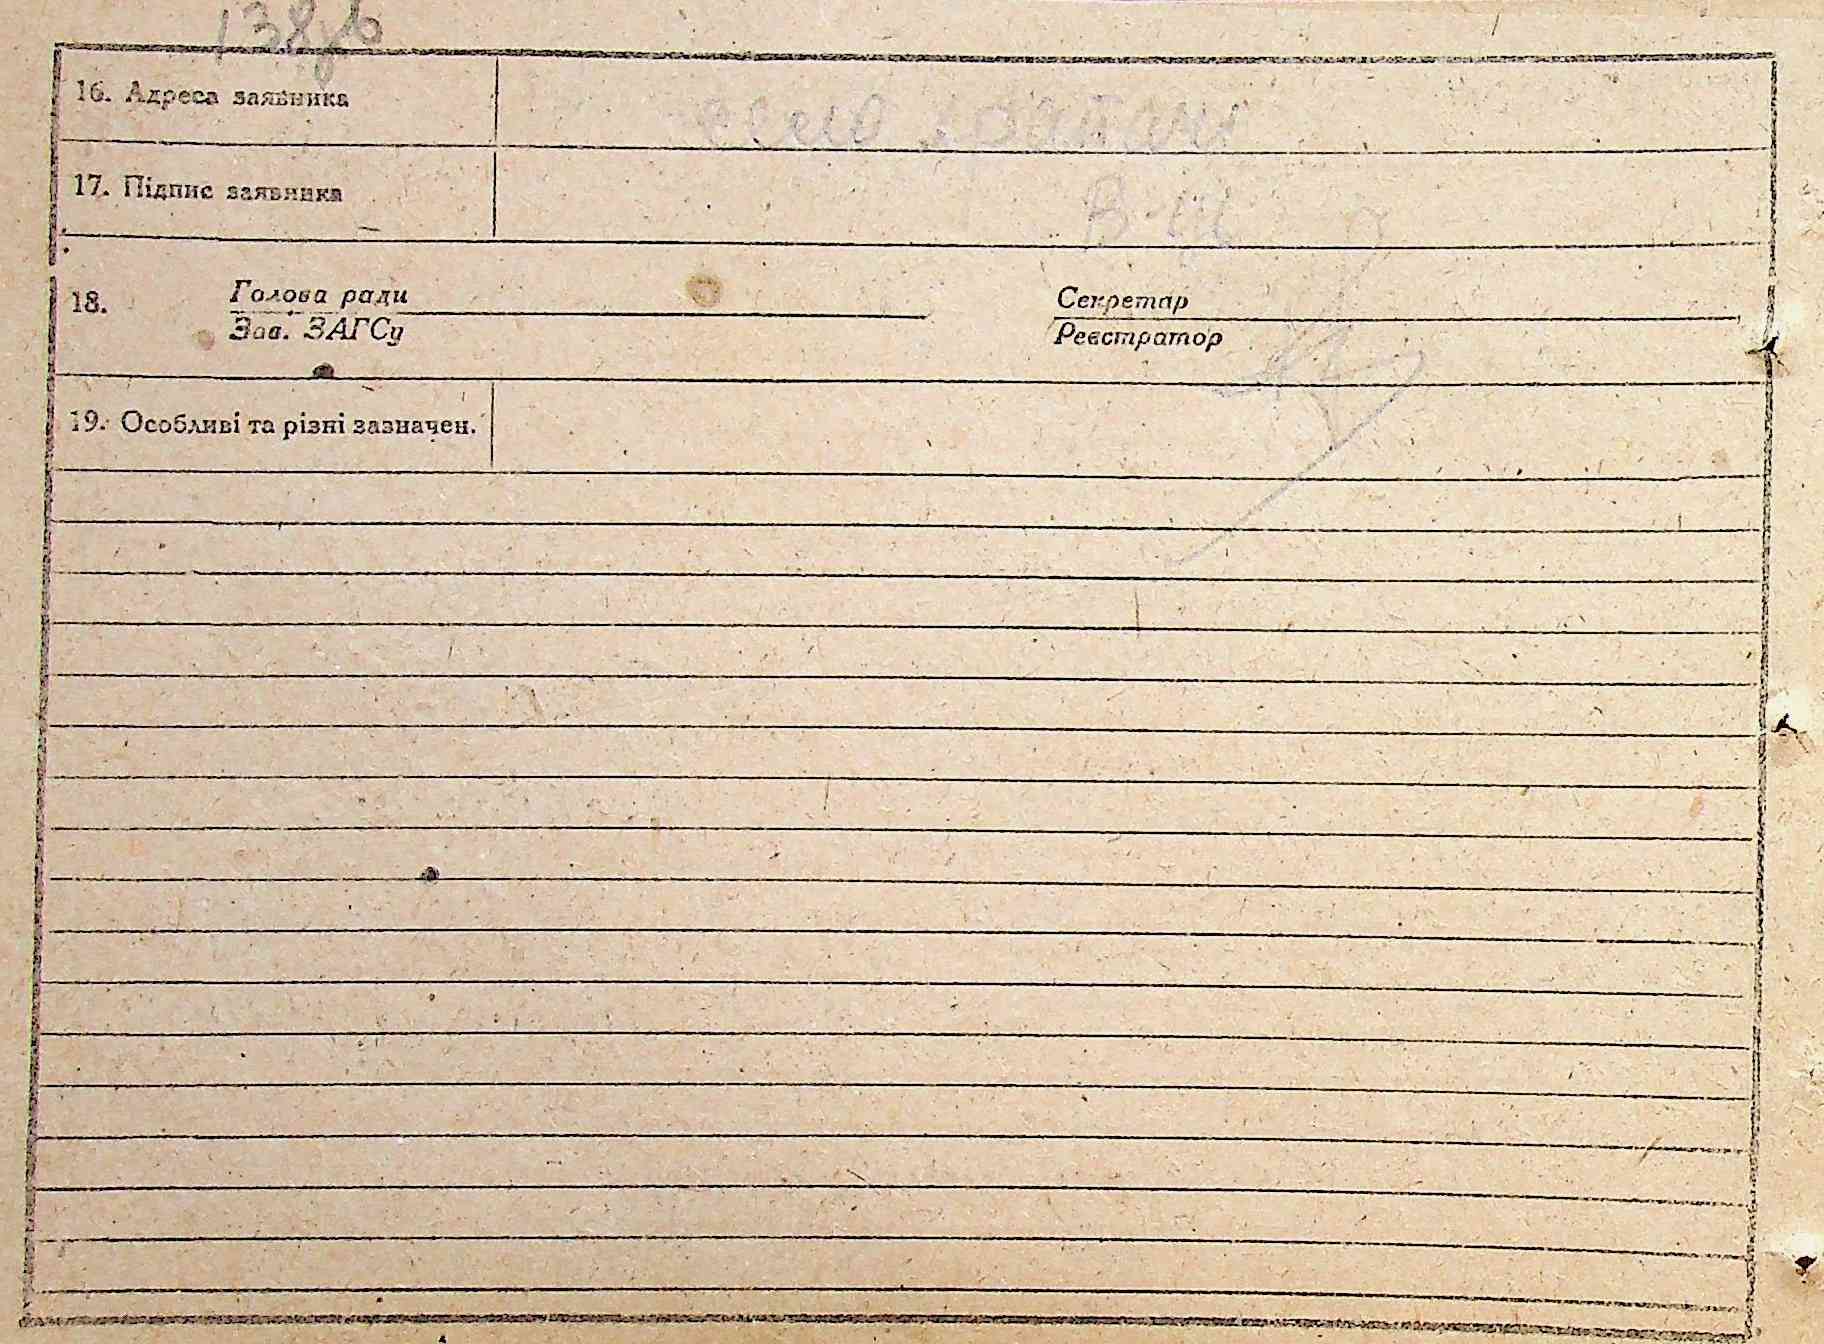 138зв
16. Адреса заявника село
17. Підпис заявника
18. Голова ради Секретар
Зав. ЗАГСу Реєстратор
19. Особливі та різні зазначен.